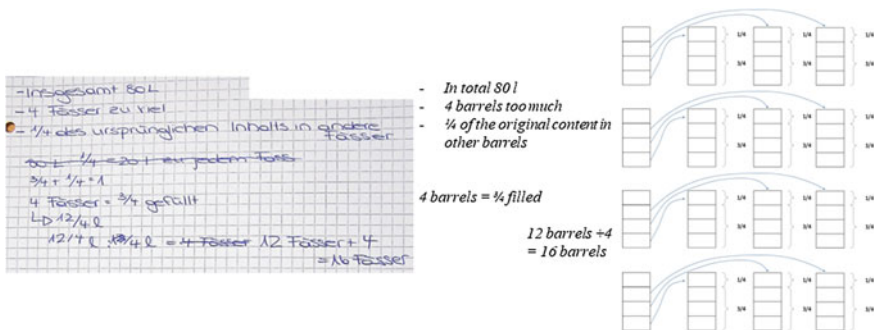 -Insgesamt 80L
-4 Fässer zu viel
-1/4 des ursprünglichen Inhalts in andere
Fässer
80 L · 1/4 = 20 l zu jedem Fass
3/4 + 1/4 = 1
4 Fässer = 3/4 gefüllt
12/4 l
12/4 l : 3/4 l = 4 Fässer 12 Fässer + 4
= 16 Fässer
- In total 80 l
- 4 barrels too much
- ¼ of the original content in
other barrels
4 barrels = ¾ filled
12 barrels +4
= 16 barrels
1/4 1/4 1/4
3/4 3/4 3/4
1/4 1/4 1/4
3/4 3/4 3/4
1/4 1/4 1/4
3/4 3/4 3/4
1/4 1/4 1/4
3/4 3/4 3/4